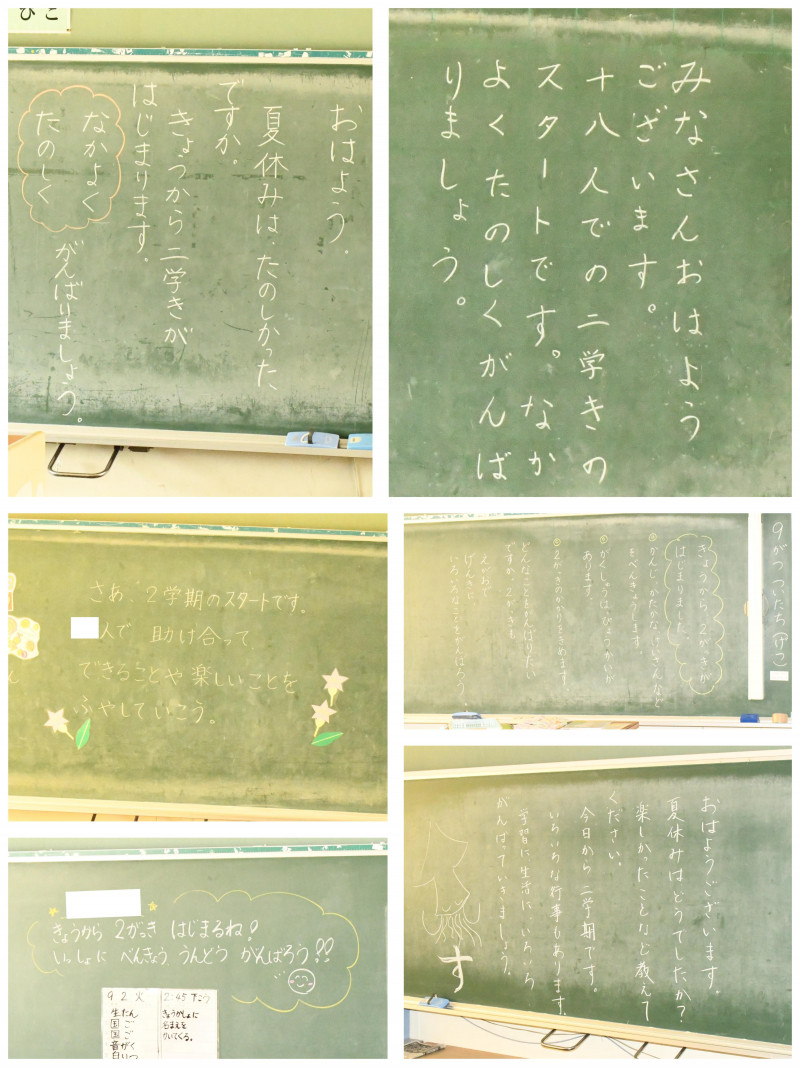 びこ
おはよう.
夏休みは、たのしかった
ですか。
きょうから二学きが
はじまります。
なかよく
たのしく
がんばりましょう。
みなさんおはよう
ございます。
十八人での二学きの
スタートです。なか
よくたのしくがんば
りましょう。
さあ、2学期のスタートです。
人で 助け合って
できることや楽しいことを
ふやしていこう。
9がつついたち(げつ)
きょうから、2がっきが
はじまりました。
かんじ、かたかな、けいさんなど
をべんきょうします。
がくしゅうはっぴょうかいが
あります。
2がっきのかかりをきめます。
どんなことをがんばりたい
ですか。2がっきも
えがおで
げんきに
いろいろなことをがんばろう。
きょうから 2がっき はじまるね!
いっしょに べんきょう うんどう がんばろう!!
9 2 火
生たん
国ご
国ご
音がく
2:45げこう
きょうかしょに
名まえを
かいてくる。
おはようございます。
夏休みはどうでしたか?
楽しかったことなど教えて
ください。
今日から二学期です。
いろいろな行事もあります。
学習に生活に、いろいろ
がんばっていきましょう。
す